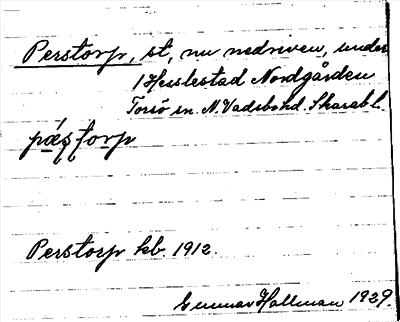 Perstorp, st, nu nedriven, under
1 Hesslestad Nordgården
Torsö sn. N. Vadsbo hd. Skarab. l.
pæʂtorp
Perstorp kb. 1912.
Gunnar Hallman 1929.